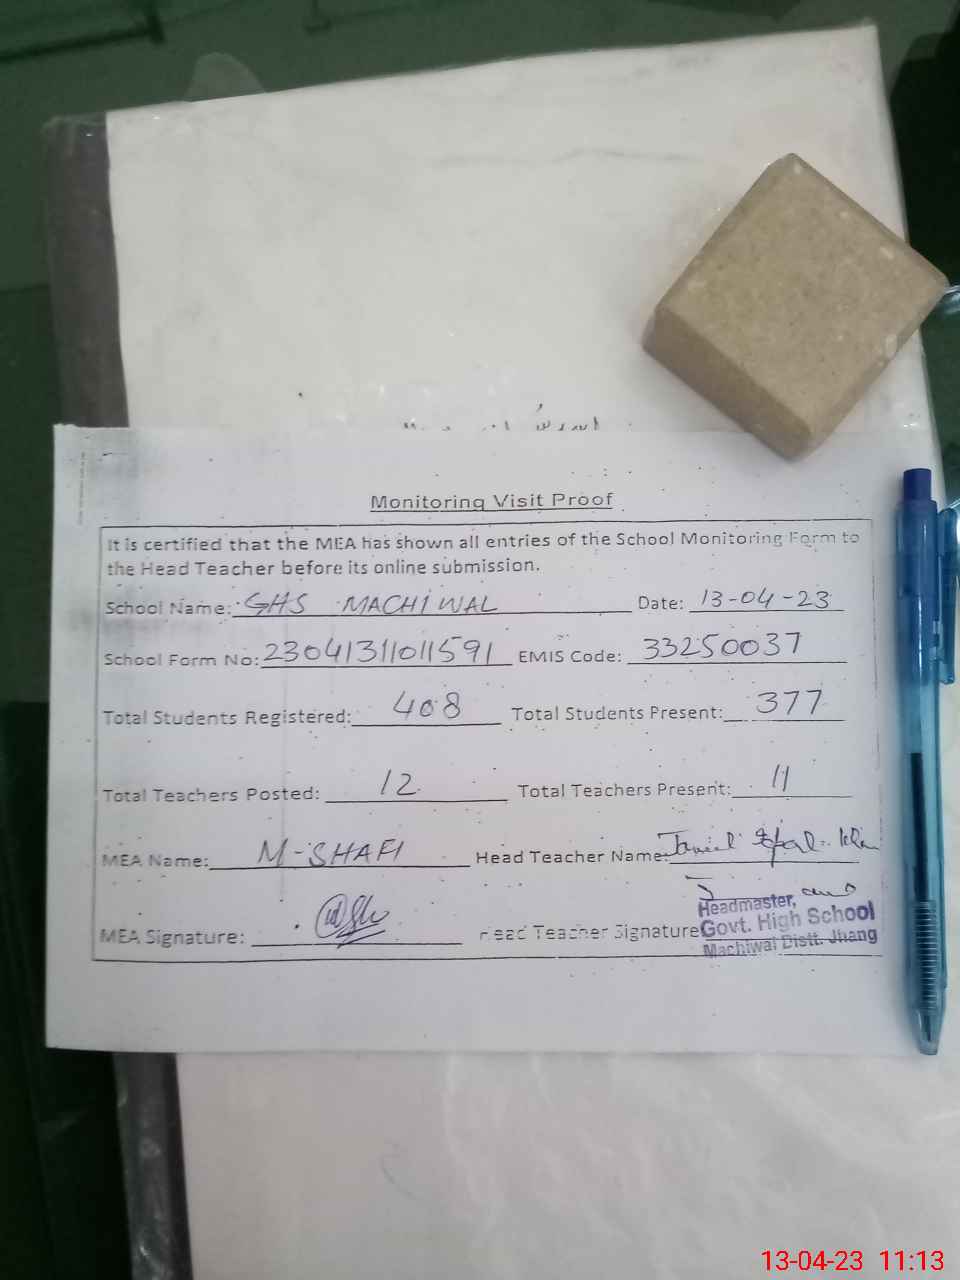 Monitoring Visit Proof
It is certified that the MEA has shown all entries of the School Monitoring Form to
the Head Teacher before its online submission.
School Name: GHS MACHIWAL Date: 13-04-23
School Form No: 23041311011591 EMIS Code: 33250037
Total Students Registered: 408 Total Students Present: 377
Total Teachers Posted: 12 Total Teachers Present: 11
MEA Name: M-SHAFI Head Teacher Name: Khan
MEA Signature: Head Teacher Signature
Headmaster,
Govt. High School
Machiwal Distt. Jhang
13-04-23 11:13